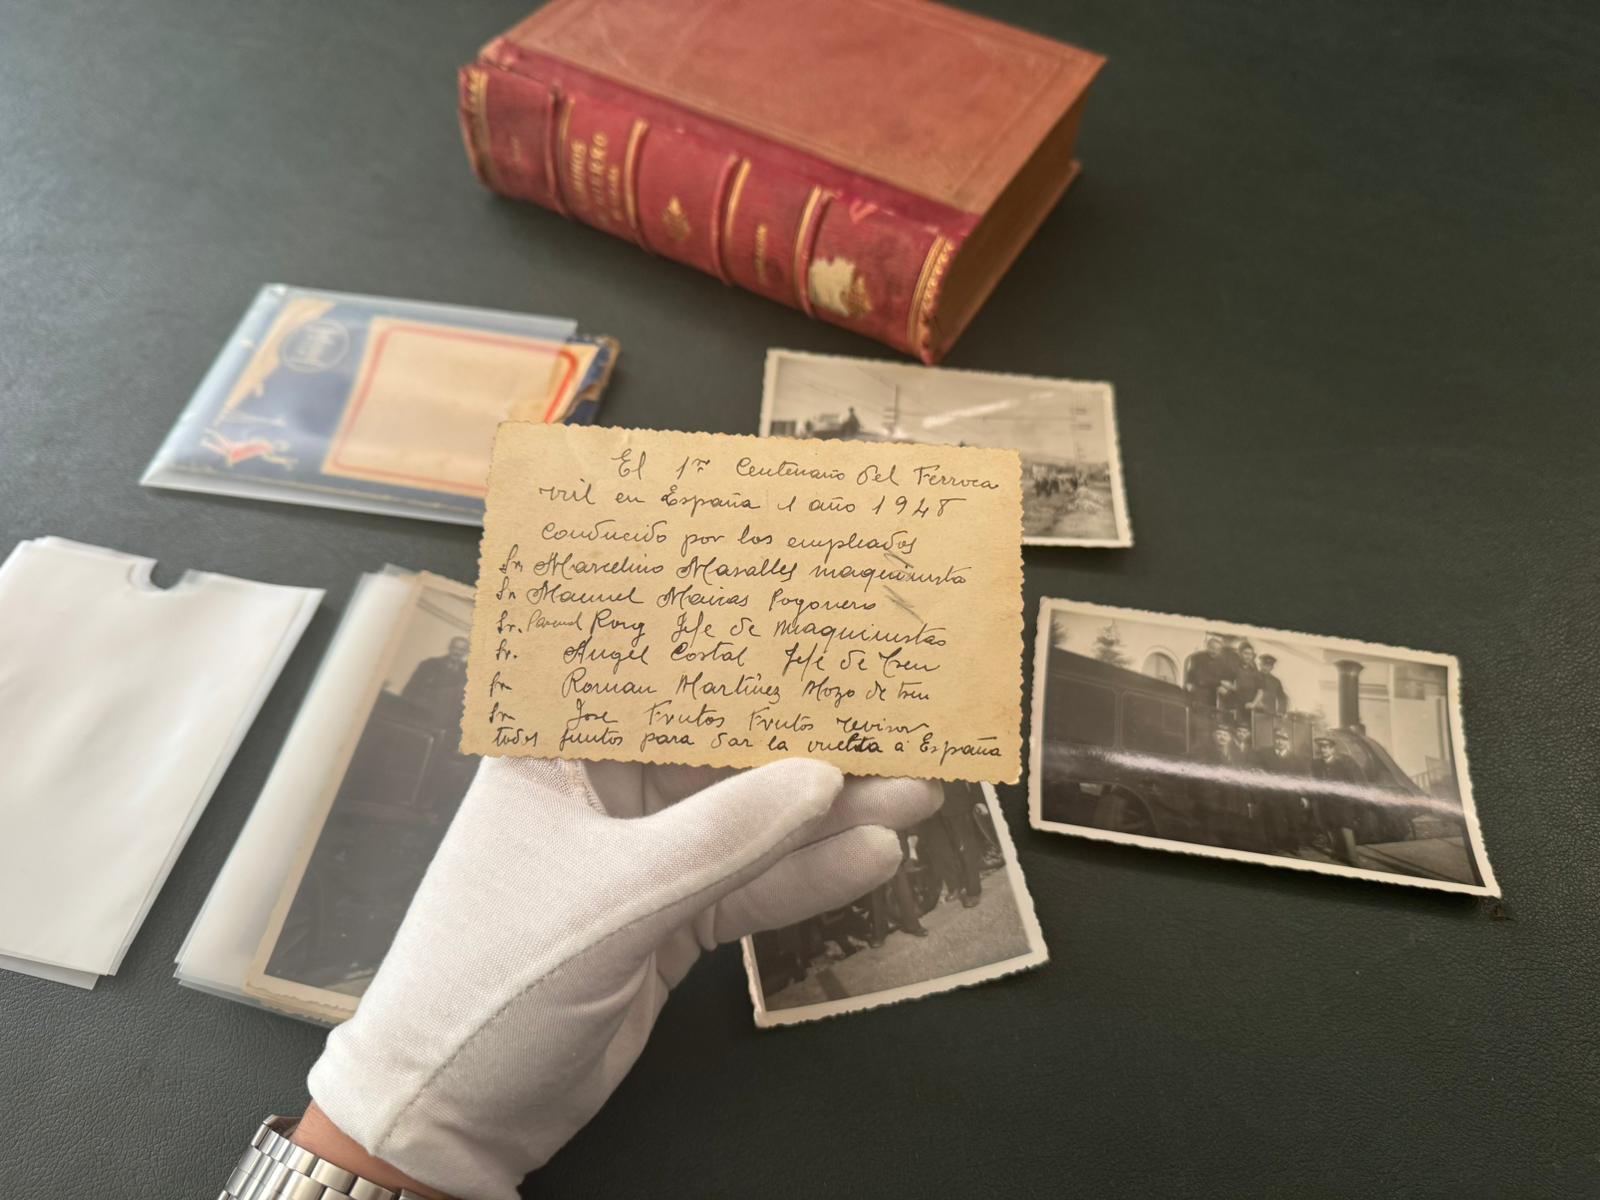 CAMINOS
DE HIERRO
El 1er Centenario del Ferroca
rril en España 1 año 1948
Conducido por los empleados
Sr Marcelino Masalles maquinista
Sr Manuel Mairas fogonero
Sr. Roig Jefe de maquinistas
Sr. Angel Costal Jefe de tren
Sr Roman Martinez Mozo de tren
Sr Jose Frutos Frutos revisor
todos juntos para dar la vuelta a España